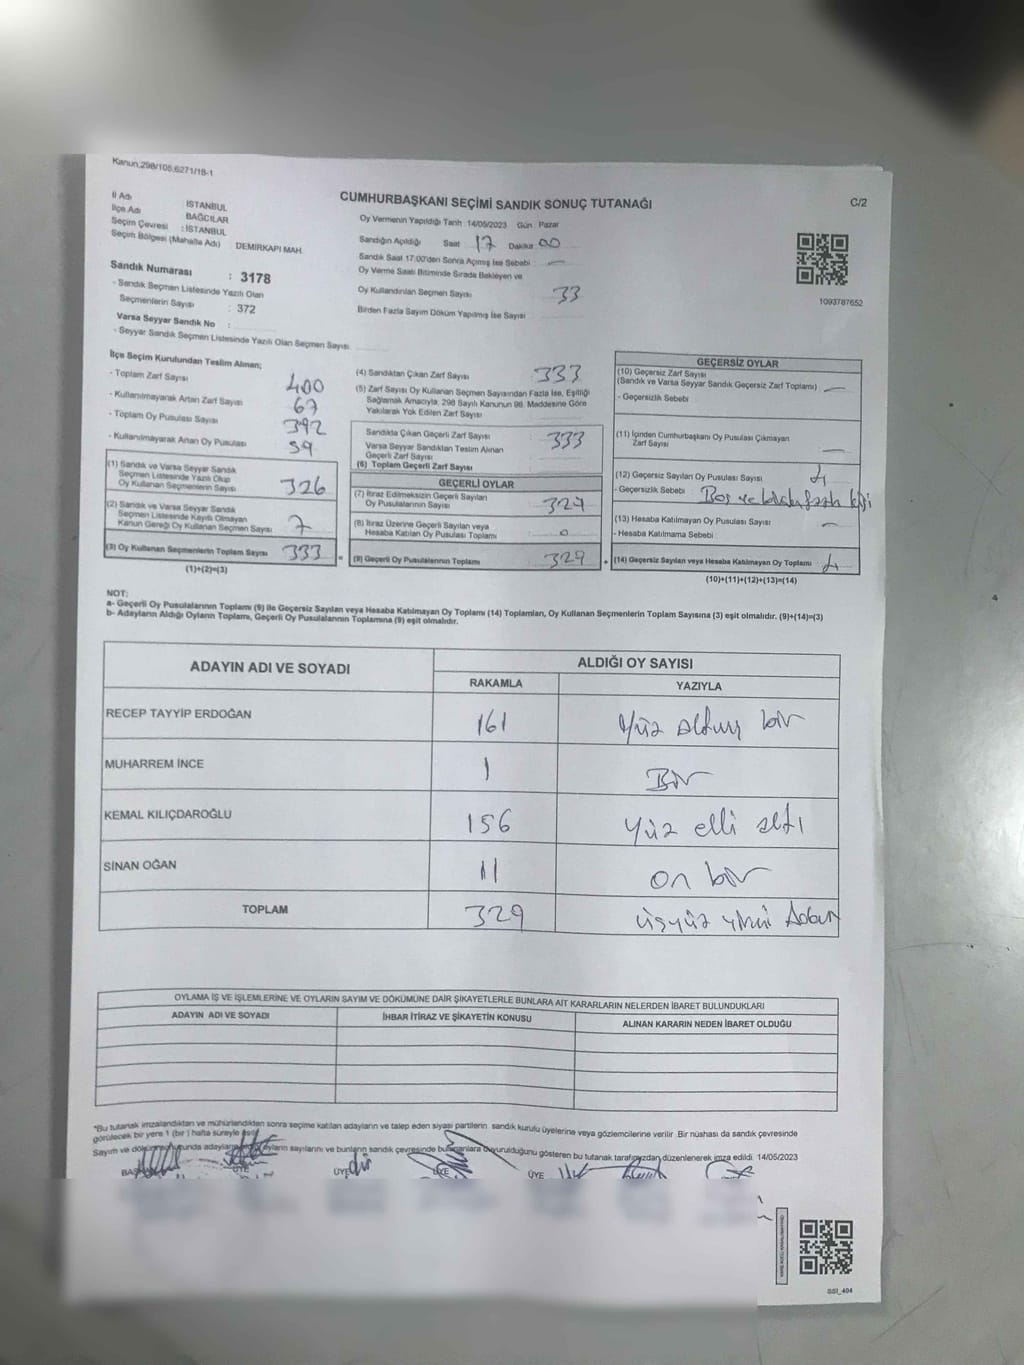 Kanun,298/105,6271/18-1
CUMHURBAŞKANI SEÇİMİ SANDIK SONUÇ TUTANAĞI
C/2
İl Adı İSTANBUL
İlçe Adı BAĞCILAR
Seçim Çevresi : İSTANBUL
Seçim Bölgesi (Mahalle Adı) DEMİRKAPI MAH.
Oy Vermenin Yapıldığı Tarih 14/05/2023 Gün Pazar
Sandığın Açıldığı Saat 17 Dakika 00
Sandık Saat 17:00'den Sonra Açılmış İse Sebebi —
Oy Verme Saati Bitiminde Sırada Bekleyen ve
Oy Kullandırılan Seçmen Sayısı 33
Birden Fazla Sayım Döküm Yapılmış İse Sayısı
1093787652
Sandık Numarası : 3178
- Sandık Seçmen Listesinde Yazılı Olan
Seçmenlerin Sayısı : 372
Varsa Seyyar Sandık No :
- Seyyar Sandık Seçmen Listesinde Yazılı Olan Seçmen Sayısı
İlçe Seçim Kurulundan Teslim Alınan;
- Toplam Zarf Sayısı 400
- Kullanılmayarak Artan Zarf Sayısı 67
- Toplam Oy Pusulası Sayısı 392
- Kullanılmayarak Artan Oy Pusulası 59
(1) Sandık ve Varsa Seyyar Sandık
Seçmen Listesinde Yazılı Olup
Oy Kullanan Seçmenlerin Sayısı 326
(2) Sandık ve Varsa Seyyar Sandık
Seçmen Listesinde Kayıtlı Olmayan
Kanun Gereği Oy Kullanan Seçmen Sayısı 7
(3) Oy Kullanan Seçmenlerin Toplam Sayısı 333
(1)+(2)=(3)
(4) Sandıktan Çıkan Zarf Sayısı 333
(5) Zarf Sayısı Oy Kullanan Seçmen Sayısından Fazla İse, Eşitliği
Sağlamak Amacıyla, 298 Sayılı Kanunun 98. Maddesine Göre
Yakılarak Yok Edilen Zarf Sayısı
Sandıkta Çıkan Geçerli Zarf Sayısı 333
Varsa Seyyar Sandıktan Teslim Alınan
Geçerli Zarf Sayısı
(6) Toplam Geçerli Zarf Sayısı
GEÇERLİ OYLAR
(7) İtiraz Edilmeksizin Geçerli Sayılan
Oy Pusulalarının Sayısı 329
(8) İtiraz Üzerine Geçerli Sayılan veya
Hesaba Katılan Oy Pusulası Toplamı 0
= (9) Geçerli Oy Pusulalarının Toplamı 329
GEÇERSİZ OYLAR
(10) Geçersiz Zarf Sayısı
(Sandık ve Varsa Seyyar Sandık Geçersiz Zarf Toplamı) —
- Geçersizlik Sebebi
(11) İçinden Cumhurbaşkanı Oy Pusulası Çıkmayan
Zarf Sayısı —
(12) Geçersiz Sayılan Oy Pusulası Sayısı 4
- Geçersizlik Sebebi : Boş ve birden fazla kişi
(13) Hesaba Katılmayan Oy Pusulası Sayısı —
- Hesaba Katılmama Sebebi
+ (14) Geçersiz Sayılan veya Hesaba Katılmayan Oy Toplamı 4
(10)+(11)+(12)+(13)=(14)
NOT:
a- Geçerli Oy Pusulalarının Toplamı (9) ile Geçersiz Sayılan veya Hesaba Katılmayan Oy Toplamı (14) Toplamları, Oy Kullanan Seçmenlerin Toplam Sayısına (3) eşit olmalıdır. (9)+(14)=(3)
b- Adayların Aldığı Oyların Toplamı, Geçerli Oy Pusulalarının Toplamına (9) eşit olmalıdır.
ADAYIN ADI VE SOYADI ALDIĞI OY SAYISI
RAKAMLA YAZIYLA
RECEP TAYYİP ERDOĞAN 161 Yüz altmış bir
MUHARREM İNCE 1 Bir
KEMAL KILIÇDAROĞLU 156 Yüz elli altı
SİNAN OĞAN 11 on bir
TOPLAM 329 üçyüz yirmi dokuz
OYLAMA İŞ VE İŞLEMLERİNE VE OYLARIN SAYIM VE DÖKÜMÜNE DAİR ŞİKAYETLERLE BUNLARA AİT KARARLARIN NELERDEN İBARET BULUNDUKLARI
ADAYIN ADI VE SOYADI İHBAR İTİRAZ VE ŞİKAYETİN KONUSU ALINAN KARARIN NEDEN İBARET OLDUĞU
*Bu tutanak imzalandıktan ve mühürlandıktan sonra seçime katılan adayların ve talep eden siyasi partilerin sandık kurulu üyelerine veya gözlemcilerine verilir. Bir nüshası da sandık çevresinde
görülecek bir yere 1 (bir) hafta süreyle asılır.
Sayım ve dökümün sonunda adayların oyların sayılarını ve bunların sandık çevresinde bulunanlara duyurulduğunu gösteren bu tutanak tarafımızdan düzenlenerek imza edildi. 14/05/2023
ÜYE ÜYE ÜYE ÜYE
SSI_404